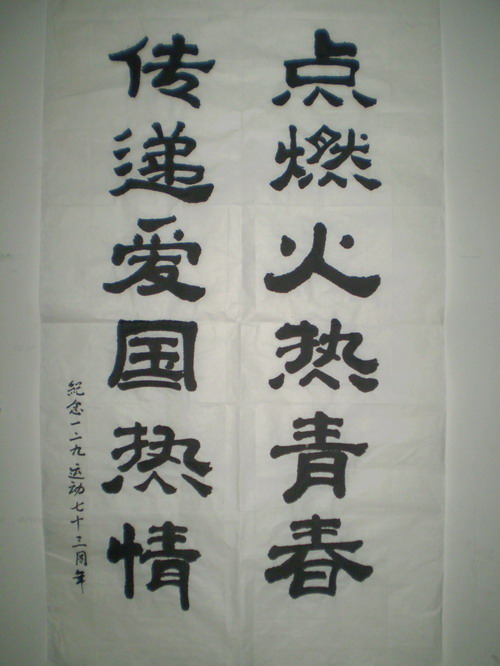 点燃火热青春
传递爱国热情
纪念一二九运动七十三周年